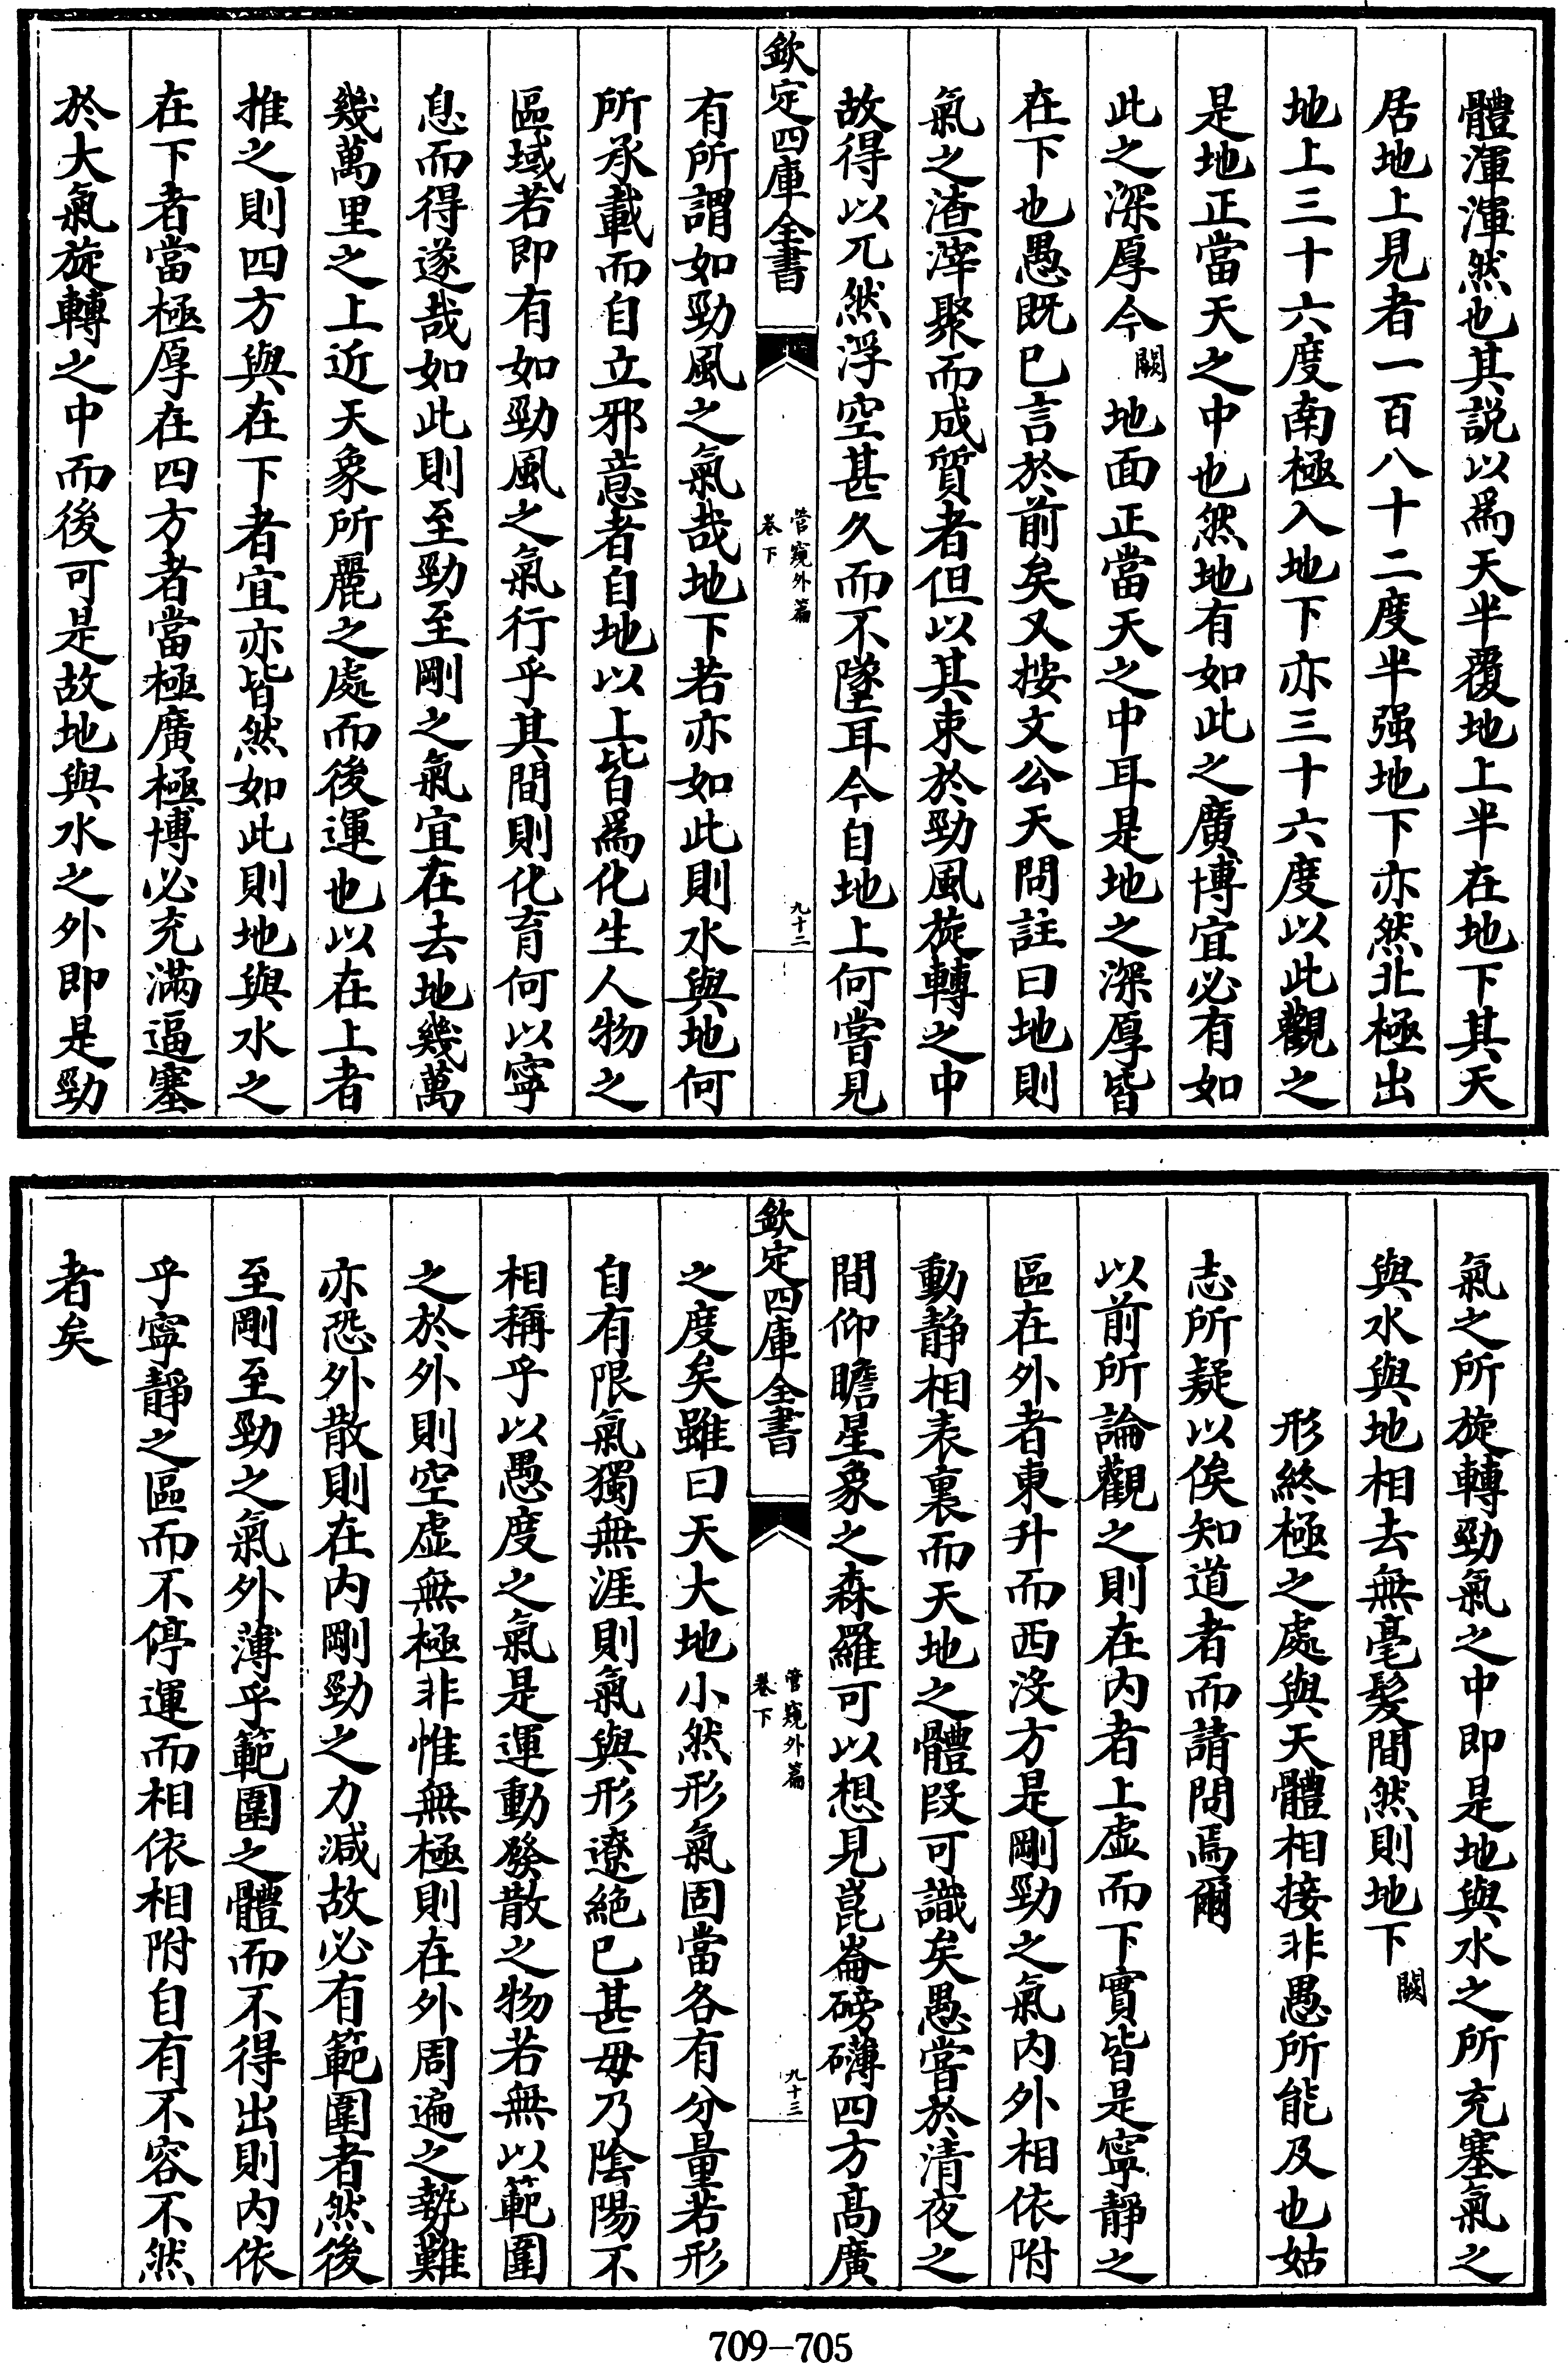 體渾渾然也其説以爲天半覆地上半在地下其天
居地上見者一百八十二度半强地下亦然北極出
地上三十六度南極入地下亦三十六度以此觀之
是地正當天之中也然地有如此之廣博宜必有如
此之深厚今闕地面正當天之中耳是地之深厚皆
在下也愚既已言於前矣又按文公天問註曰地則
氣之渣滓聚而成質者但以其束於勁風旋轉之中
故得以兀然浮空甚久而不墜耳今自地上何嘗見
欽定四庫全書
管窺外篇
卷下
九十二
有所謂如勁風之氣哉地下若亦如此則水與地何
所承載而自立邪意者自地以上皆爲化生人物之
區域若即有如勁風之氣行乎其間則化育何以寧
息而得遂哉如此則至勁至剛之氣宜在去地幾萬
幾萬里之上近天象所麗之處而後運也以在上者
推之則四方與在下者宜亦皆然如此則地與水之
在下者當極厚在四方者當極廣極博必充滿逼塞
於大氣旋轉之中而後可是故地與水之外即是勁
氣之所旋轉勁氣之中即是地與水之所充塞氣之
與水與地相去無毫髮間然則地下闕
形終極之處與天體相接非愚所能及也姑
志所疑以俟知道者而請問焉爾
以前所論觀之則在内者上虚而下實皆是寧靜之
區在外者東升而西沒方是剛勁之氣内外相依附
動靜相表裏而天地之體段可識矣愚嘗於清夜之
間仰瞻星象之森羅可以想見崑崙磅礴四方高廣
欽定四庫全書
管窺外篇
卷下
九十三
之度矣雖曰天大地小然形氣固當各有分量若形
自有限氣獨無涯則氣與形遼絶已甚毋乃陰陽不
相稱乎以愚度之氣是運動發散之物若無以範圍
之於外則空虚無極非惟無極則在外周遍之勢難
亦恐外散則在内剛勁之力減故必有範圍者然後
至剛至勁之氣外薄乎範圍之體而不得出則内依
乎寧靜之區而不停運而相依相附自有不容不然
者矣
709—705